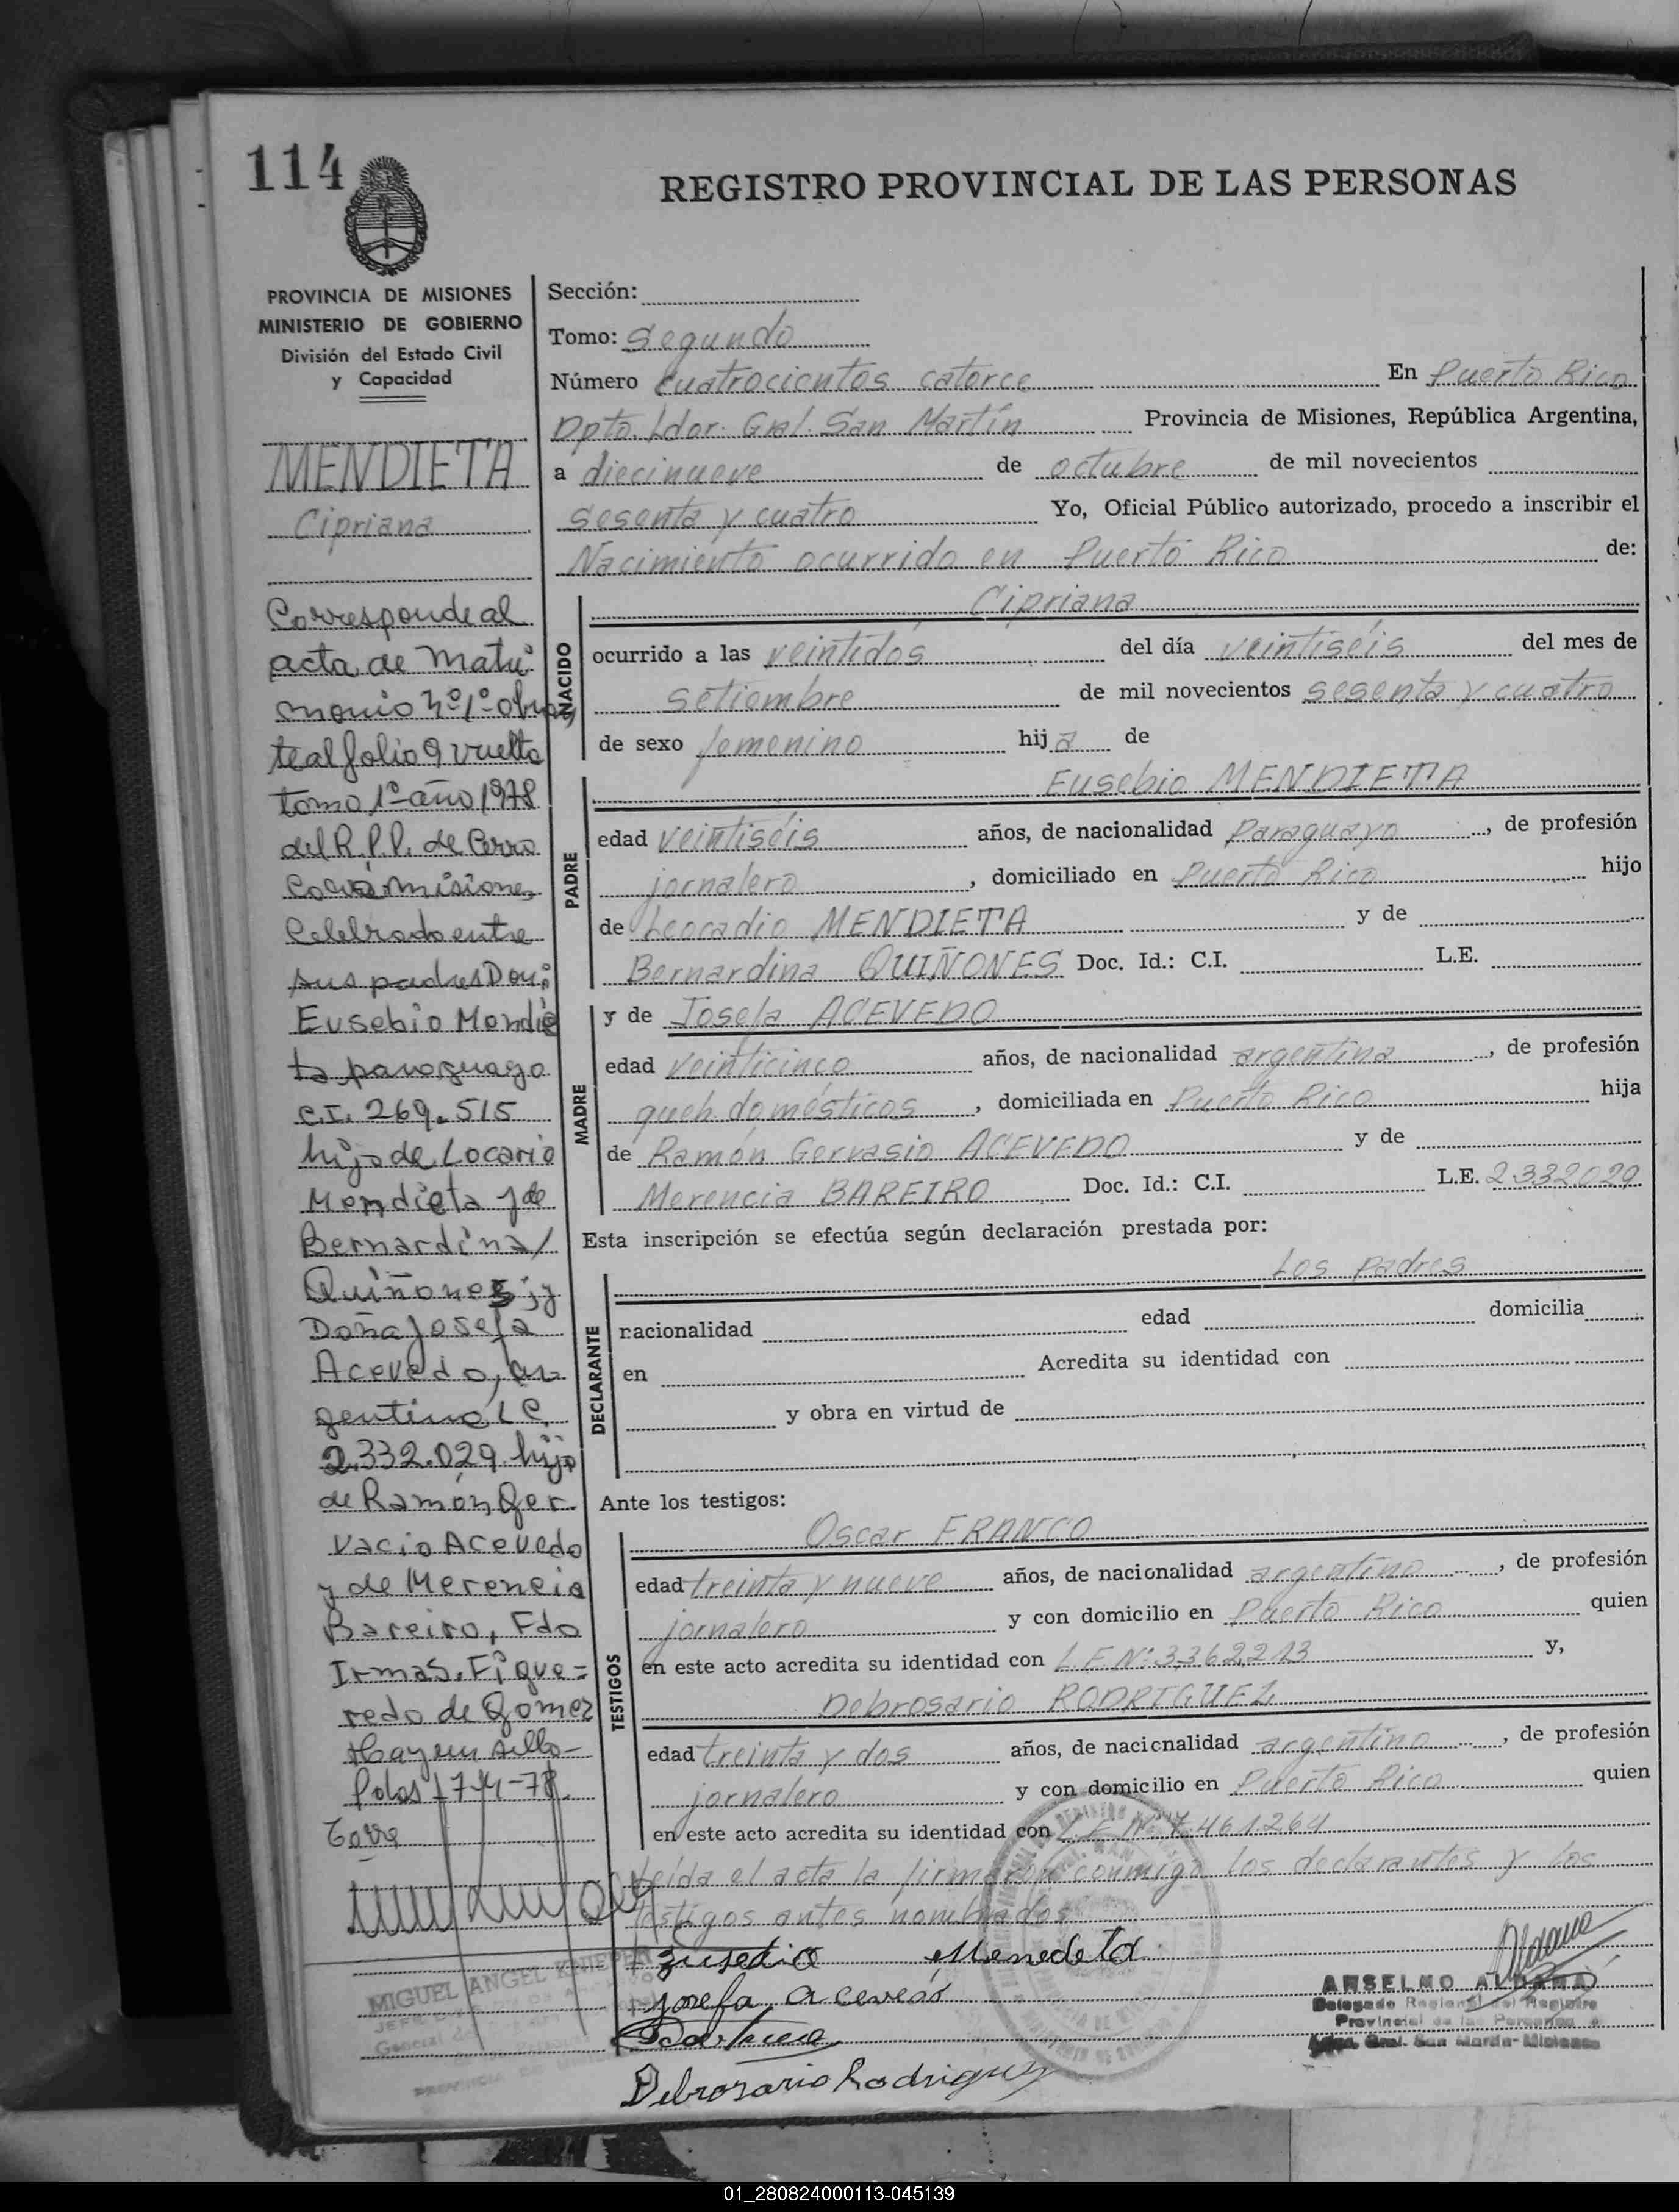 114
REGISTRO PROVINCIAL DE LAS PERSONAS
PROVINCIA DE MISIONES
MINISTERIO DE GOBIERNO
División del Estado Civil
y Capacidad
MENDIETA
Cipriana
Corresponde al
acta de Matri
monio Nº 1º obran
te al folio 9 vuelto
tomo 1º año 1978
del R.P.P. de Cerro
Corá Misiones
Celebrado entre
sus padres Don:
Eusebio Mendie
ta paraguayo
C.I. 269.515
hijo de Locario
Mendieta y de
Bernardina/
Quiñones; y
Doña Josefa
Acevedo, ar-
gentina, L C.
2.332.029 hija
de Ramón Ger-
vacio Acevedo
y de Merencia
Bareiro, Fdo
Irma S. Figue=
redo de Gomez
Hay un sello-
Pdas 17-4-78.
MIGUEL ANGEL KNIEPER
Sección:
Tomo: Segundo
Número cuatrocientos catorce En Puerto Rico
Dpto. Ldor. Gral. San Martín Provincia de Misiones, República Argentina,
a diecinueve de octubre de mil novecientos
sesenta y cuatro Yo, Oficial Público autorizado, procedo a inscribir el
Nacimiento ocurrido en Puerto Rico de:
NACIDO
Cipriana
ocurrido a las veintidos del día veintiséis del mes de
setiembre de mil novecientos sesenta y cuatro
de sexo femenino hija de
PADRE
Eusebio MENDIETA
edad veintiséis años, de nacionalidad Paraguayo, de profesión
jornalero, domiciliado en Puerto Rico hijo
de Leocadio MENDIETA y de
Bernardina QUIÑONES Doc. Id.: C.I. L.E.
MADRE
y de Josefa ACEVEDO
edad veinticinco años, de nacionalidad argentina, de profesión
queh. domésticos, domiciliada en Puerto Rico hija
de Ramón Gervasio ACEVEDO y de
Merencia BAREIRO Doc. Id.: C.I. L.E. 2332029
Esta inscripción se efectúa según declaración prestada por:
DECLARANTE
Los padres
nacionalidad edad domicilia
en Acredita su identidad con
y obra en virtud de
Ante los testigos:
TESTIGOS
Oscar FRANCO
edad treinta y nueve años, de nacionalidad argentino, de profesión
jornalero y con domicilio en Puerto Rico quien
en este acto acredita su identidad con L.E.Nº: 3.362.213 y,
Debrosario RODRIGUEZ
edad treinta y dos años, de nacionalidad argentino, de profesión
jornalero y con domicilio en Puerto Rico quien
en este acto acredita su identidad con L.E.Nº: 7.461.264
Leída el acta la firmaron conmigo los declarantes y los
testigos antes nombrados
Eusebio Menedeta
josefa acevedo
Debrosario Rodriguez
ANSELMO ALDANA
Delegado Regional del Registro
Provincial de las Personas
Gral. San Martín-Misiones
01_280824000113-045139